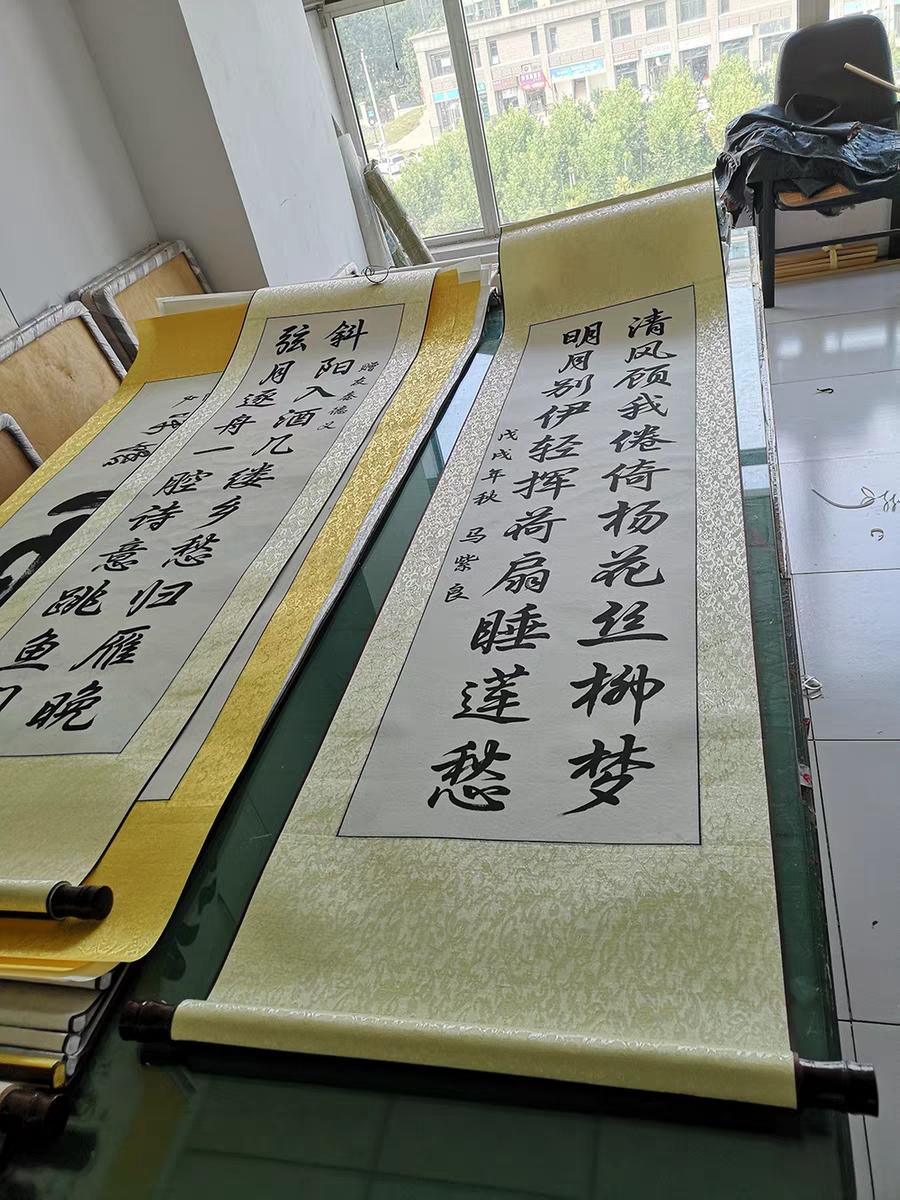 清风顾我倦倚杨花丝柳梦
明月别伊轻挥荷扇睡莲愁
戊戌年秋 马紫良
赠友秦德义
斜阳入酒几缕乡愁归雁晚
弦月逐舟一腔诗意跳鱼